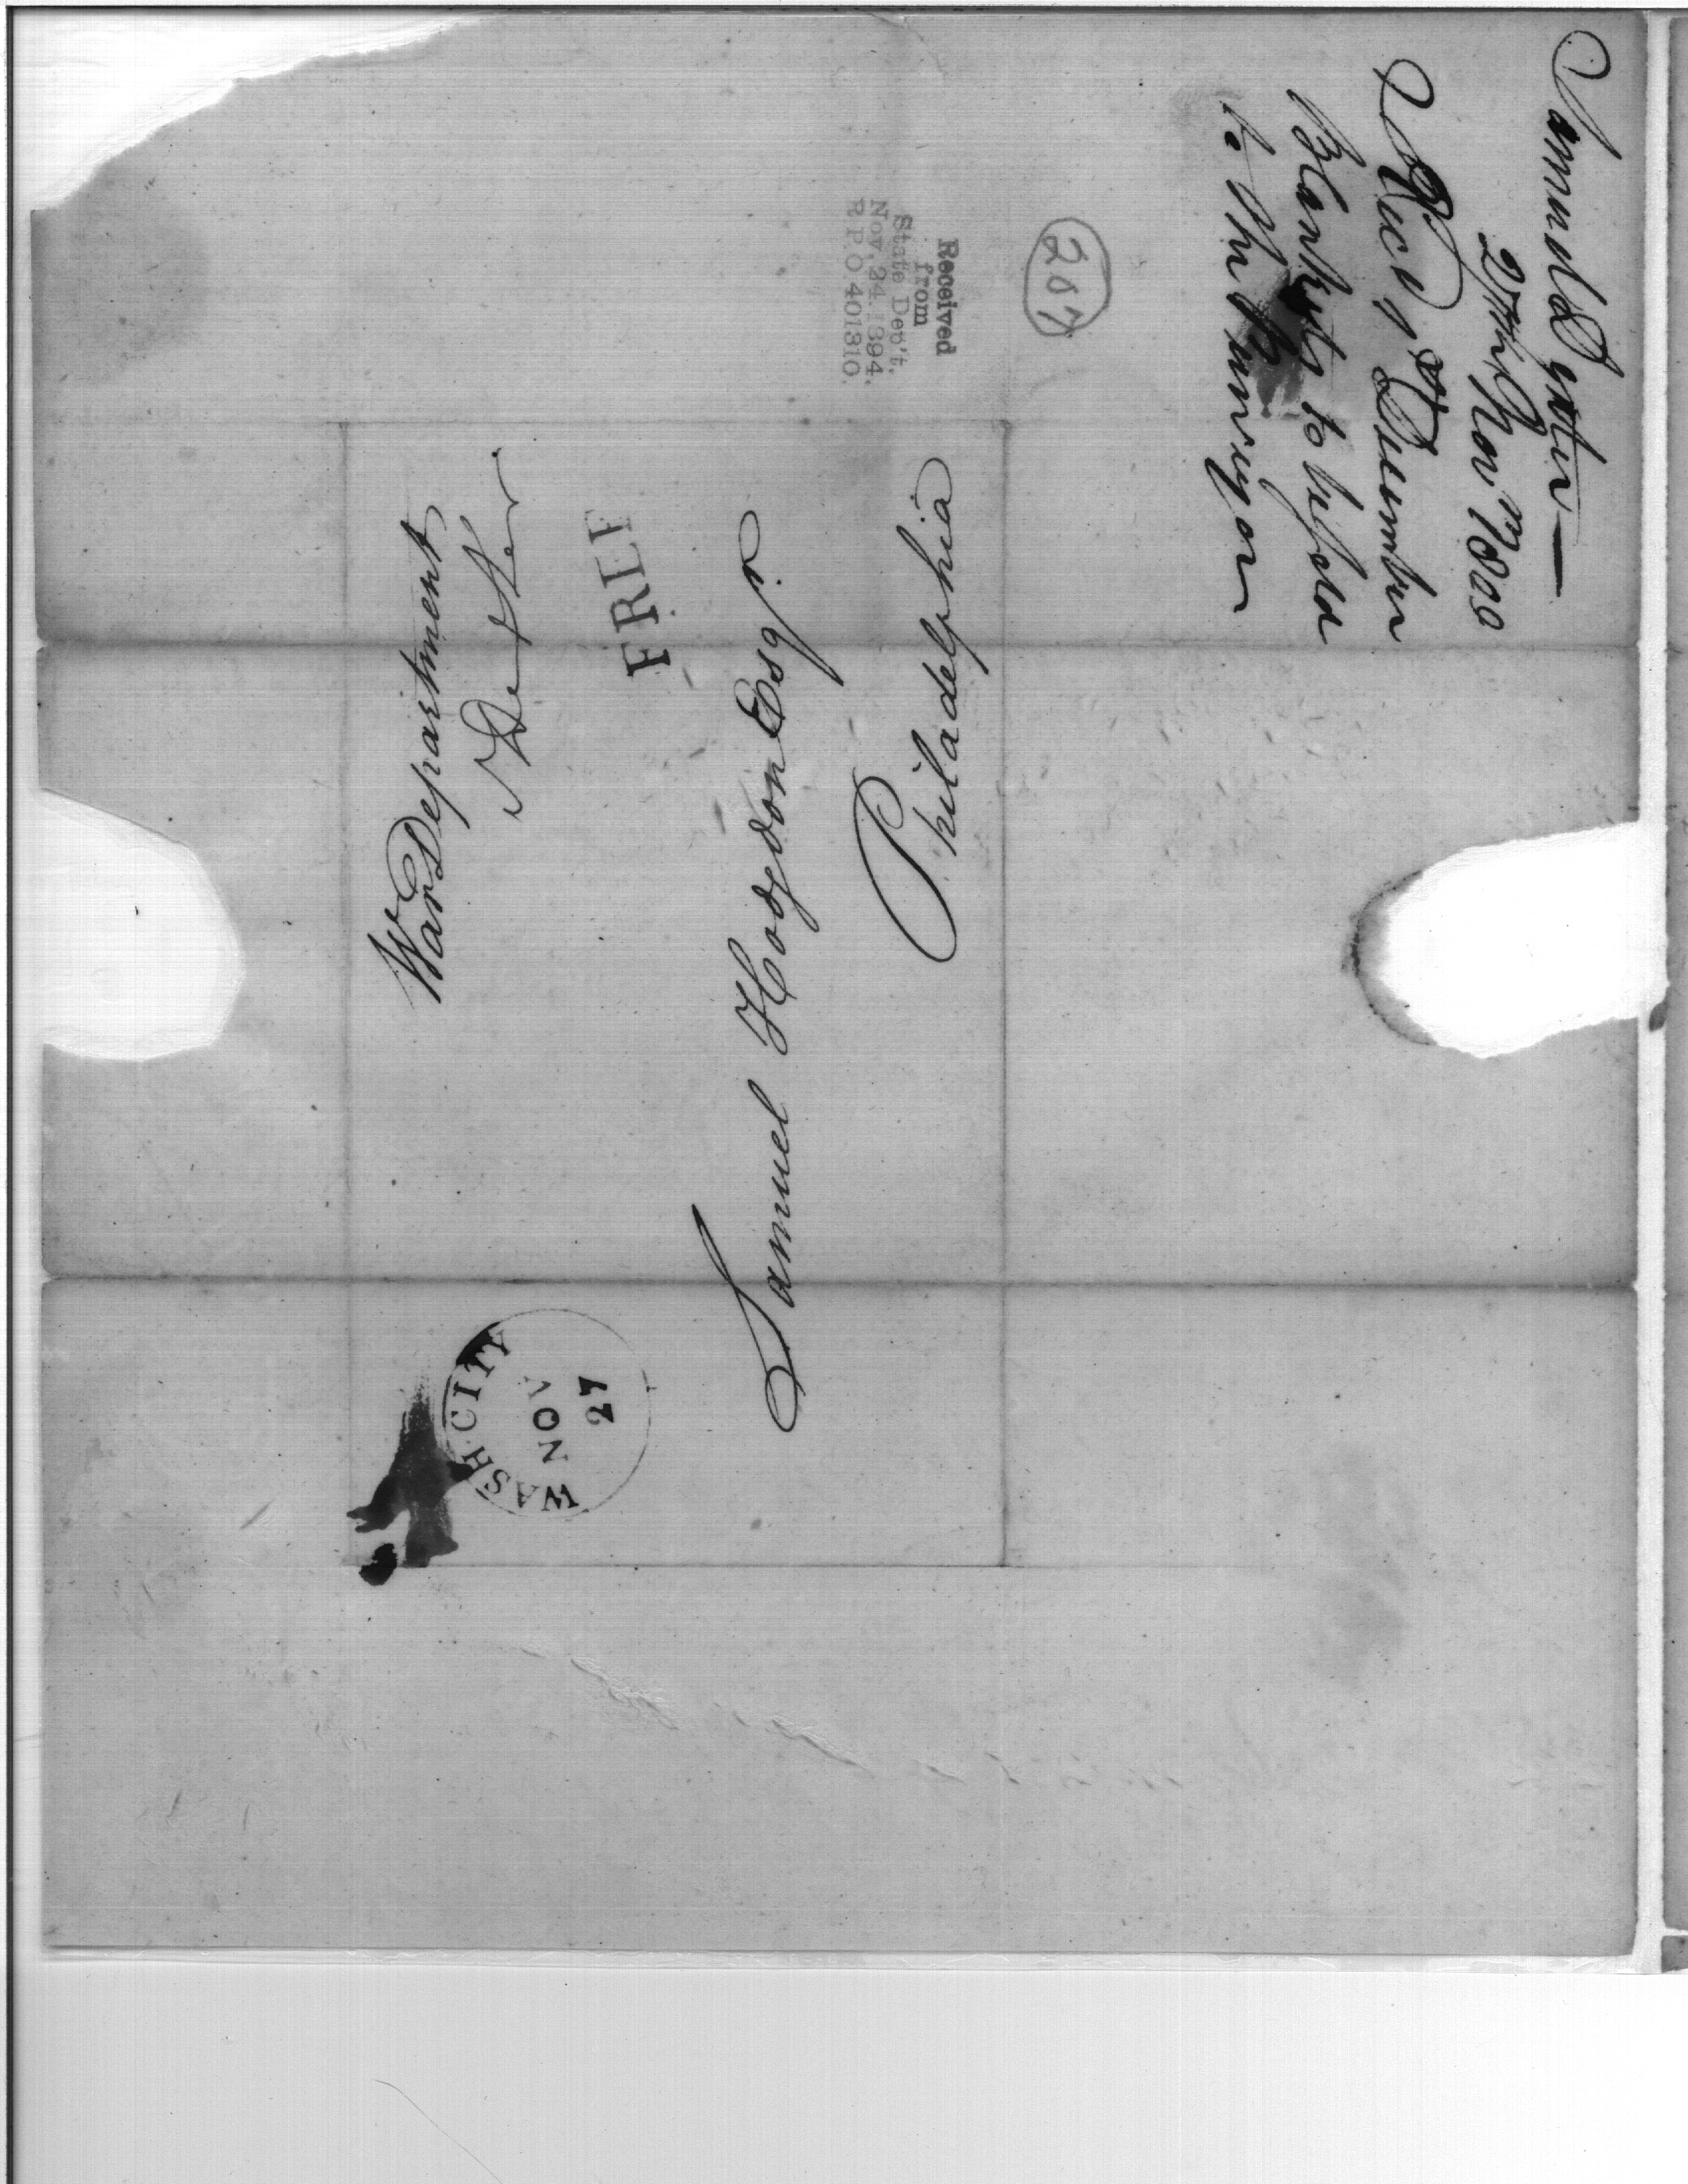 War Department
S Dexter
FREE
WASH. CITY
NOV
27
Samuel Hodgdon Esqr.
Philadelphia
207
Received
from
State Dep't.
Nov. 24. 1894.
R. P. O 401310.
Samuel Dexter
27th Nov. 1800
Rec'd 1st December
Blankets to be sold
to the Surveyor